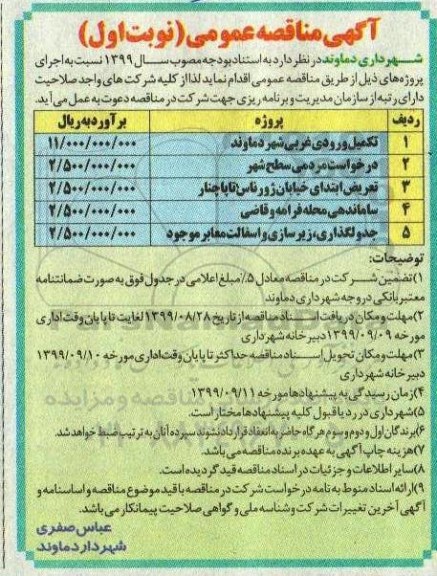 آگهی مناقصه عمومی (نوبت اول)
شهرداری دماوند در نظر دارد به استناد بودجه مصوب سال ۱۳۹۹ نسبت به اجرای
پروژه‌های ذیل از طریق مناقصه عمومی اقدام نماید لذا از کلیه شرکت های واجد صلاحیت
دارای رتبه از سازمان مدیریت و برنامه ریزی جهت شرکت در مناقصه دعوت به عمل می آید.
ردیف پروژه برآورد به ریال
۱ تکمیل ورودی غربی شهر دماوند ۱۱/۰۰۰/۰۰۰/۰۰۰
۲ درخواست مردمی سطح شهر ۲/۵۰۰/۰۰۰/۰۰۰
۳ تعریض ابتدای خیابان ژورناس تا پاچنار ۲/۵۰۰/۰۰۰/۰۰۰
۴ ساماندهی محله فرامه و قاضی ۲/۵۰۰/۰۰۰/۰۰۰
۵ جدولگذاری، زیرسازی و اسفالت معابر موجود ۲/۵۰۰/۰۰۰/۰۰۰
توضیحات:
۱) تضمین شرکت در مناقصه معادل ۵٪ مبلغ اعلامی در جدول فوق به صورت ضمانتنامه
معتبر بانکی در وجه شهرداری دماوند
۲) مهلت و مکان دریافت اسناد مناقصه از تاریخ ۱۳۹۹/۰۸/۲۸ لغایت تا پایان وقت اداری
مورخه ۱۳۹۹/۰۹/۰۹ دبیرخانه شهرداری
۳) مهلت و مکان تحویل اسناد مناقصه حداکثر تا پایان وقت اداری مورخه ۱۳۹۹/۰۹/۱۰
دبیرخانه شهرداری
۴) زمان رسیدگی به پیشنهادها مورخه ۱۳۹۹/۰۹/۱۱
۵) شهرداری در رد یا قبول کلیه پیشنهادها مختار است.
۶) برندگان اول و دوم و سوم هرگاه حاضر به انعقاد قرارداد نشوند سپرده آنان به ترتیب ضبط خواهد شد.
۷) هزینه چاپ آگهی به عهده برنده مناقصه می باشد.
۸) سایر اطلاعات و جزئیات در اسناد مناقصه قید گردیده است.
۹) ارائه اسناد منوط به نامه درخواست شرکت در مناقصه با قید موضوع مناقصه و اساسنامه و
آگهی آخرین تغییرات شرکت و شناسه ملی و گواهی صلاحیت پیمانکار می باشد.
عباس صفری
شهردار دماوند